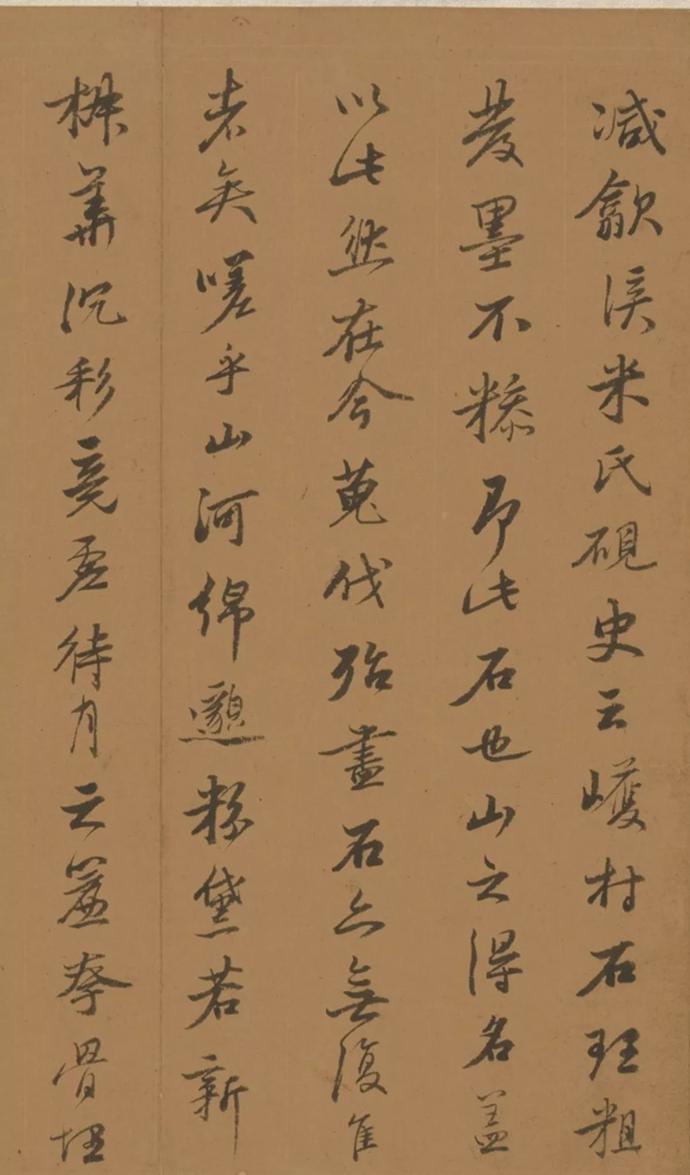 減歙溪米氏硯史云村石理粗
發墨不糝即此石也山之得名蓋
以此然在今蒐伐殆盡石亦無復佳
者矣嗟乎山河綿邈粉黛若新
椒華沉彩竟虛待月之簾夸骨埋